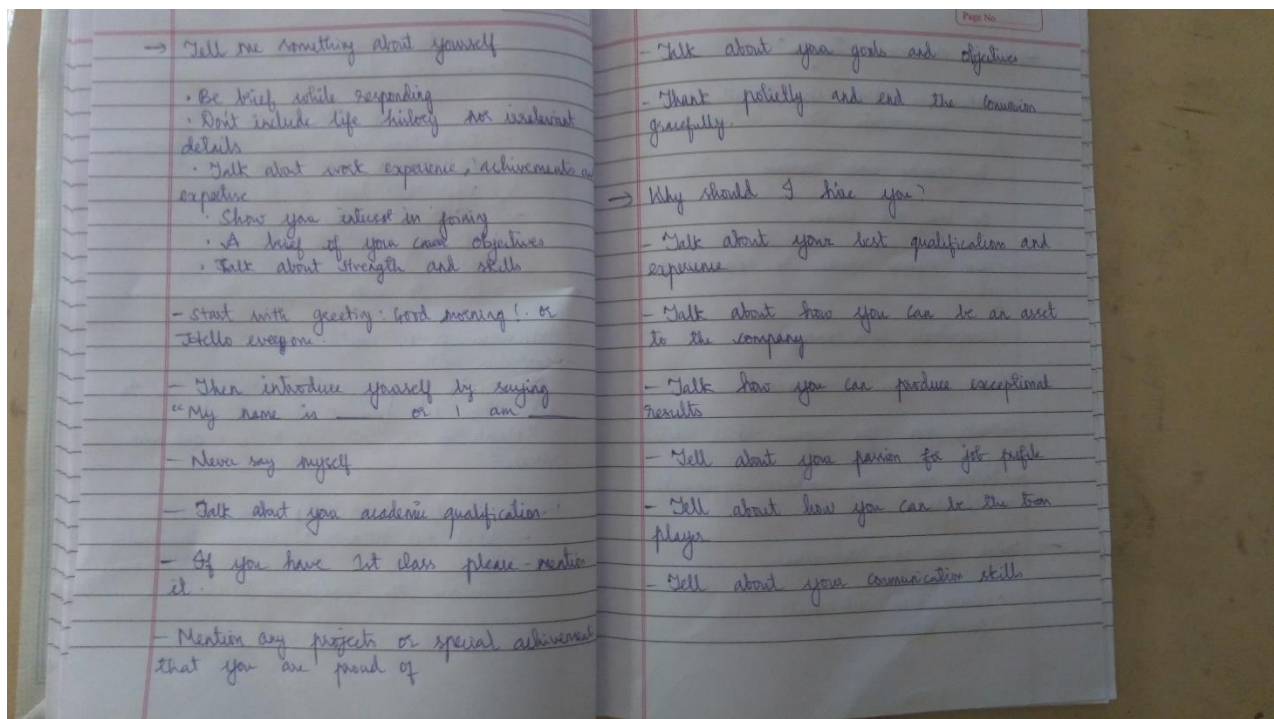 → Tell me something about yourself
· Be brief while responding
· Don't include life history nor irrelevant
details
· Talk about work experience, achivements
expertise
· Show you interest in joining
· A brief of you career objectives
· Talk about strength and skills
- Start with greeting: Good morning! or
Hello everyone.
- Then introduce yourself by saying
"My name is ____ or I am ____
- Never say myself
- Talk about your academic qualification.
- If you have 1st class please mention
it.
- Mention any projects or special achivement
that you are proud of
Page No
- Talk about your goals and objectives
- Thank polietly and end the
gracefully.
→ Why should I hire you?
- Talk about your best qualification and
experience
- Talk about how you can be an asset
to the company
- Talk how you can produce exceptional
results
- Tell about your passion for job profile
- Tell about how you can be the team
player
- Tell about your communication skills